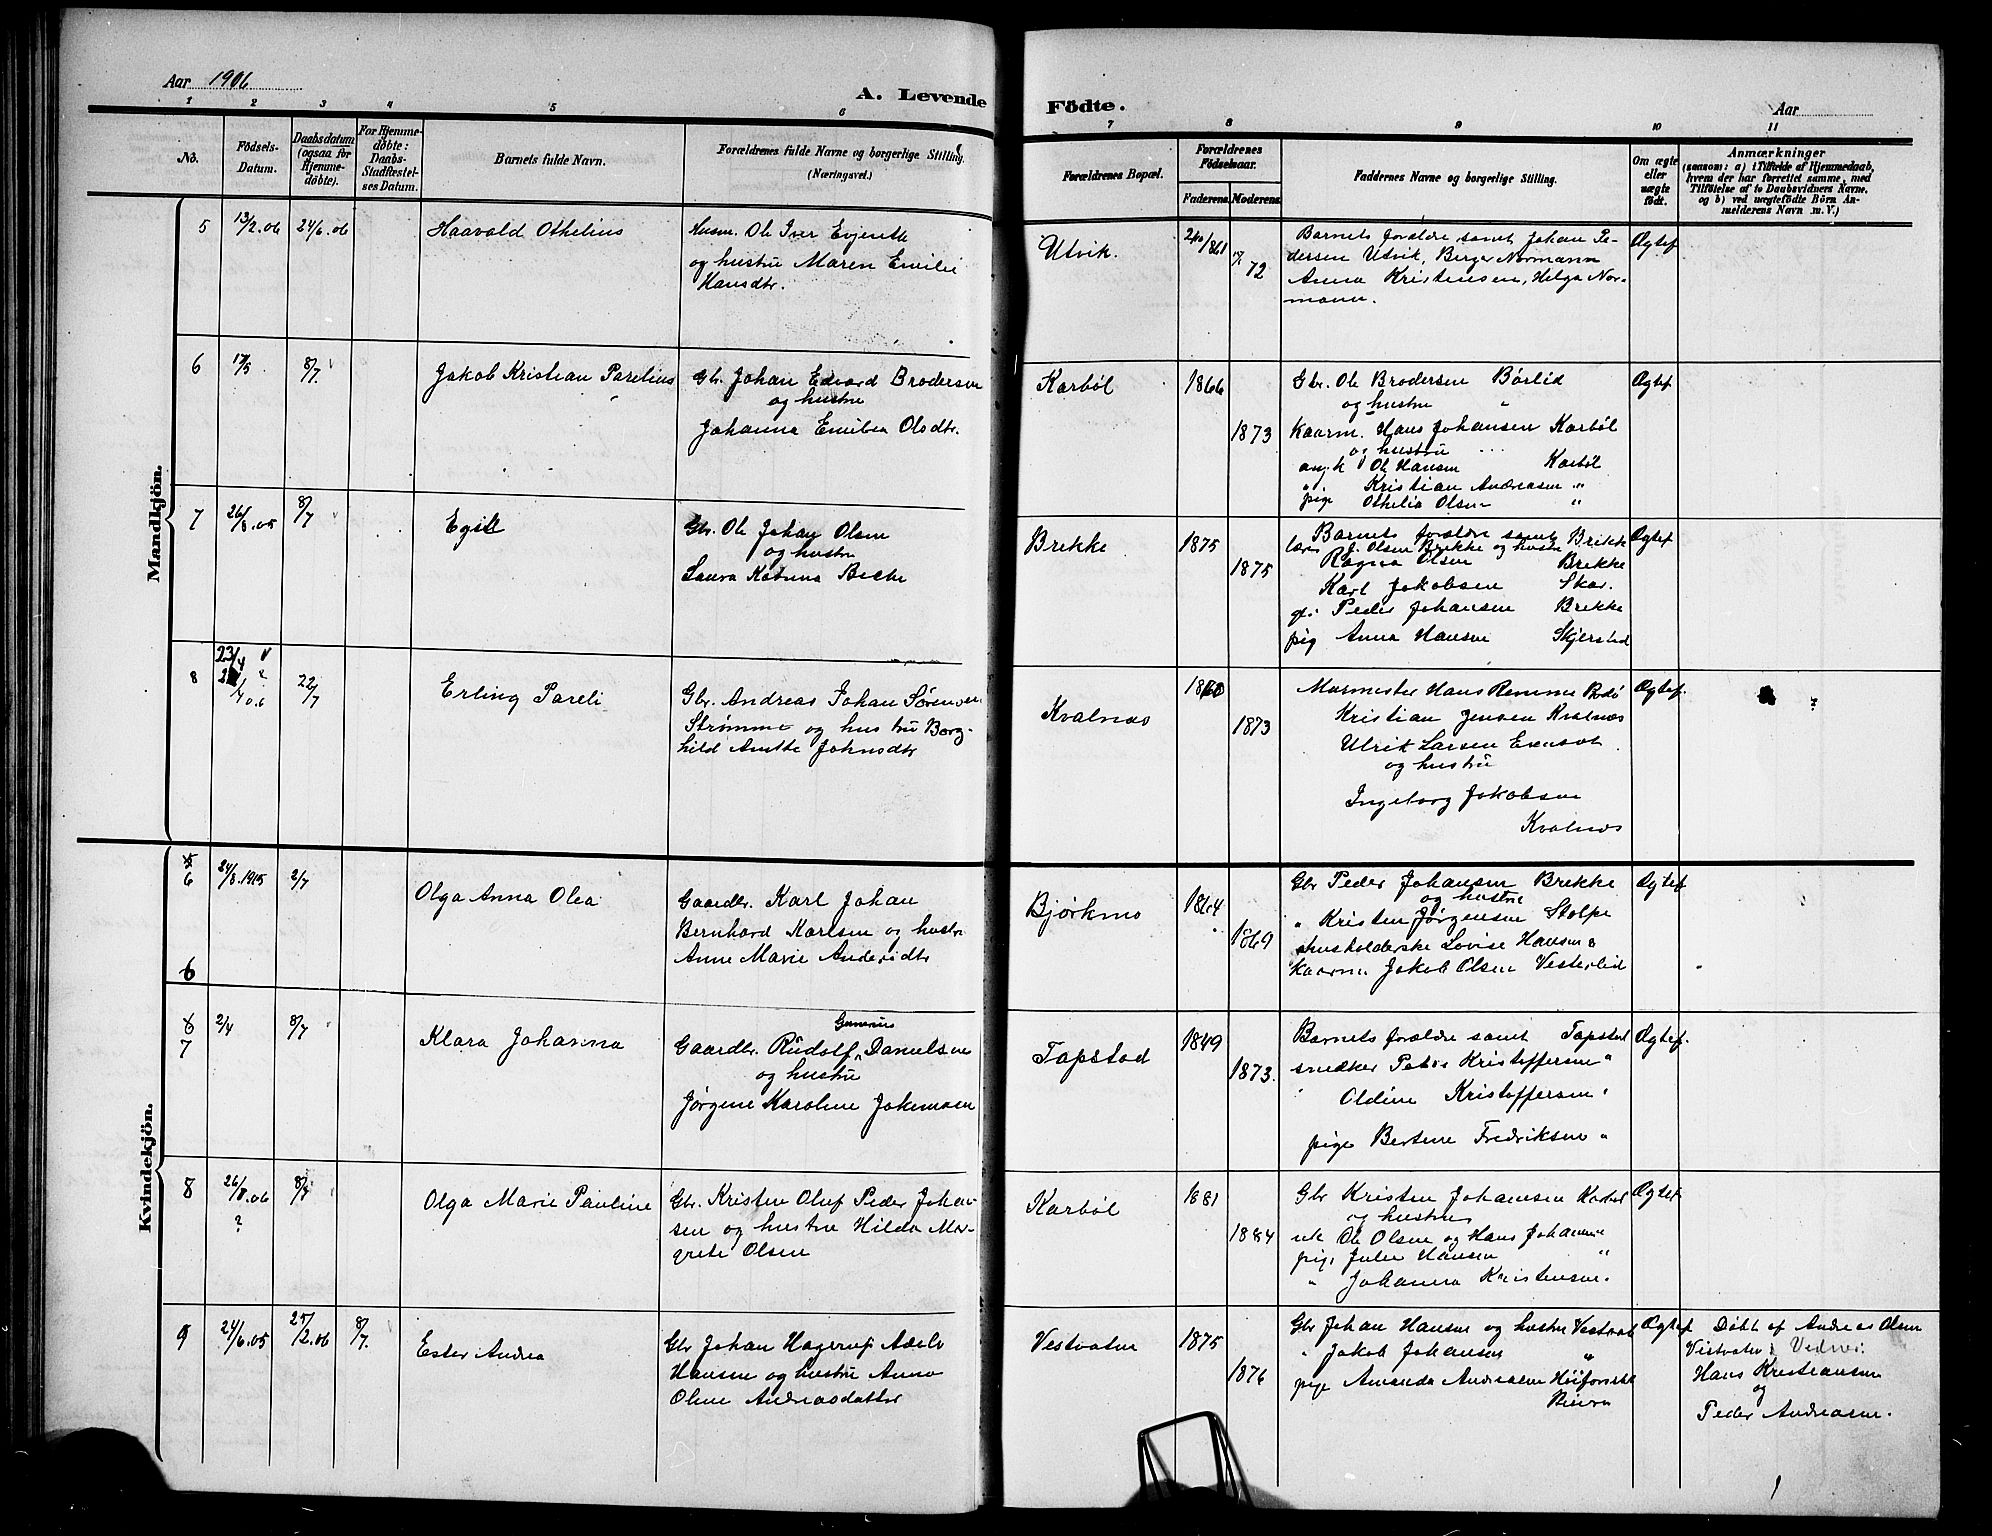 Aar 1906
A. Levende Födte.
Aar
1 2 3 4 5 6 7 8 9 10 11
No.
Födsels-Datum.
Daabsdatum (ogsaa for Hjemmedøbte).
For Hjemmedøbte: Daabs-Stadfæstelses Datum.
Barnets fulde Navn.
Forældrenes fulde Navne og borgerlige Stilling. (Næringsvei.)
Forældrenes Bopæl.
Forældrenes Födselsaar.
Faderens. Moderens.
Faddernes Navne og borgerlige Stilling.
Om ægte eller uægte født.
Anmærkninger
(saasom: a) i Tilfælde af Hjemmedaab, hvem der har forrettet samme, med Tilføielse af to Daabsvidners Navne, og b) ved uægtefödte Börn Anmelderens Navn m. V.)
Mandkjön.
5 13/2.06 24/6.06 Haavald Othelius
Husm. Ole Iver Evjenth
og hustru Maren Emilie
Hansdtr.
Utvik. 72
Barnets forældre samt Johan Pe-
dersen Utvik, Berger Normann
Anna Kristensen, Helga Nor-
mann.
Ægtef
6 17/5 8/7. Jakob Kristian Parelius
Gbr. Johan Edvard Brodersen
og hustru
Johanna Emilia Olsdtr.
Karbøl 1866 1873
Gbr. Ole Brodersen Børlid
og hustru "
Kaarm. Hans Johansen Karbøl
og hustru
ungk Ole Hansen Karbøl
" Kristian Andreasen "
pige Othelia Olsen "
Ægtef
7 26/8.05 8/7 Egill
Gbr. Ole Johan Olsen
og hustru
Laura Katrina
Brekke 1875 1875
Barnets forældre samt Brekke
lærer J. Olsen Brekke og hustru
Ragna Olsen Brekke
Karl Jakobsen Skar.
Peder Johansen Brekke
pig Anna Hansen Skjerstad
Ægtef
8 23/4 22/7 Erling Pareli
Gbr. Andreas Johan Sørensen
Strømme og hustru Borg-
hild Anette Johnsdtr
Kvalnæs 1873
Murmester Hans Remme Bodø
Kristian Jensen Kvalnæs
Ulrik Larsen
og hustru
Ingeborg Jakobsen
Kvalnæs
Ægtef. ?
Kvindekjön.
5
6 24/8.1905 2/7 Olga Anna Olea
Gaardbr. Karl Johan
Bernhard Karlsen og hustru
Anne Marie
6
Bjørkmo 1864 1869
Gbr Peder Johansen Brekke
og hustru
" Kristen Jørgensen Stolpe
husholderske Lovise Hansen
Kaarm. Jakob Olsen Vesterlid
Ægtef
6
7 2/4 8/7 Klara Johanna
Gunerius
Gaardbr. Rudolf Danielsen
og hustru
Jørgine Karoline Jokumsen
Tapstad 1849 1873.
Barnets forældre samt Tapstad
snedker Peter Kristoffersen "
Oldine Kristoffersen "
pige Bertine Fredriksen "
Ægtef.
8 26/8.06 8/7
?
Olga Marie Pauline
Gbr. Kristen Oluf Peder Johan-
sen og hustru Hilda Mar-
grete Olsen
Karbøl 1881 1884
Gbr Kristen Johansen Karbøl
og hustru
uk Ole Olsen og Hans Johansen "
pige Julie Hansen "
" Johanna Kristensen.
Ægtef.
9 24/6.05 25/2.06 8/7. Ester Andrea
Gbr Johan Hagerup Adolv
Hansen og hustru Anna
Oline Andreasdatter
Vestvatne 1875 1876
Gbr Johan Hansen og hustru Vestvatn
" Jakob Johansen "
pige Amanda Andreasen
Ægtef
Døbt af Andreas Olsen
Vestvatn; Vidner:
Hans Kristiansen
og
Peder Andreasen.